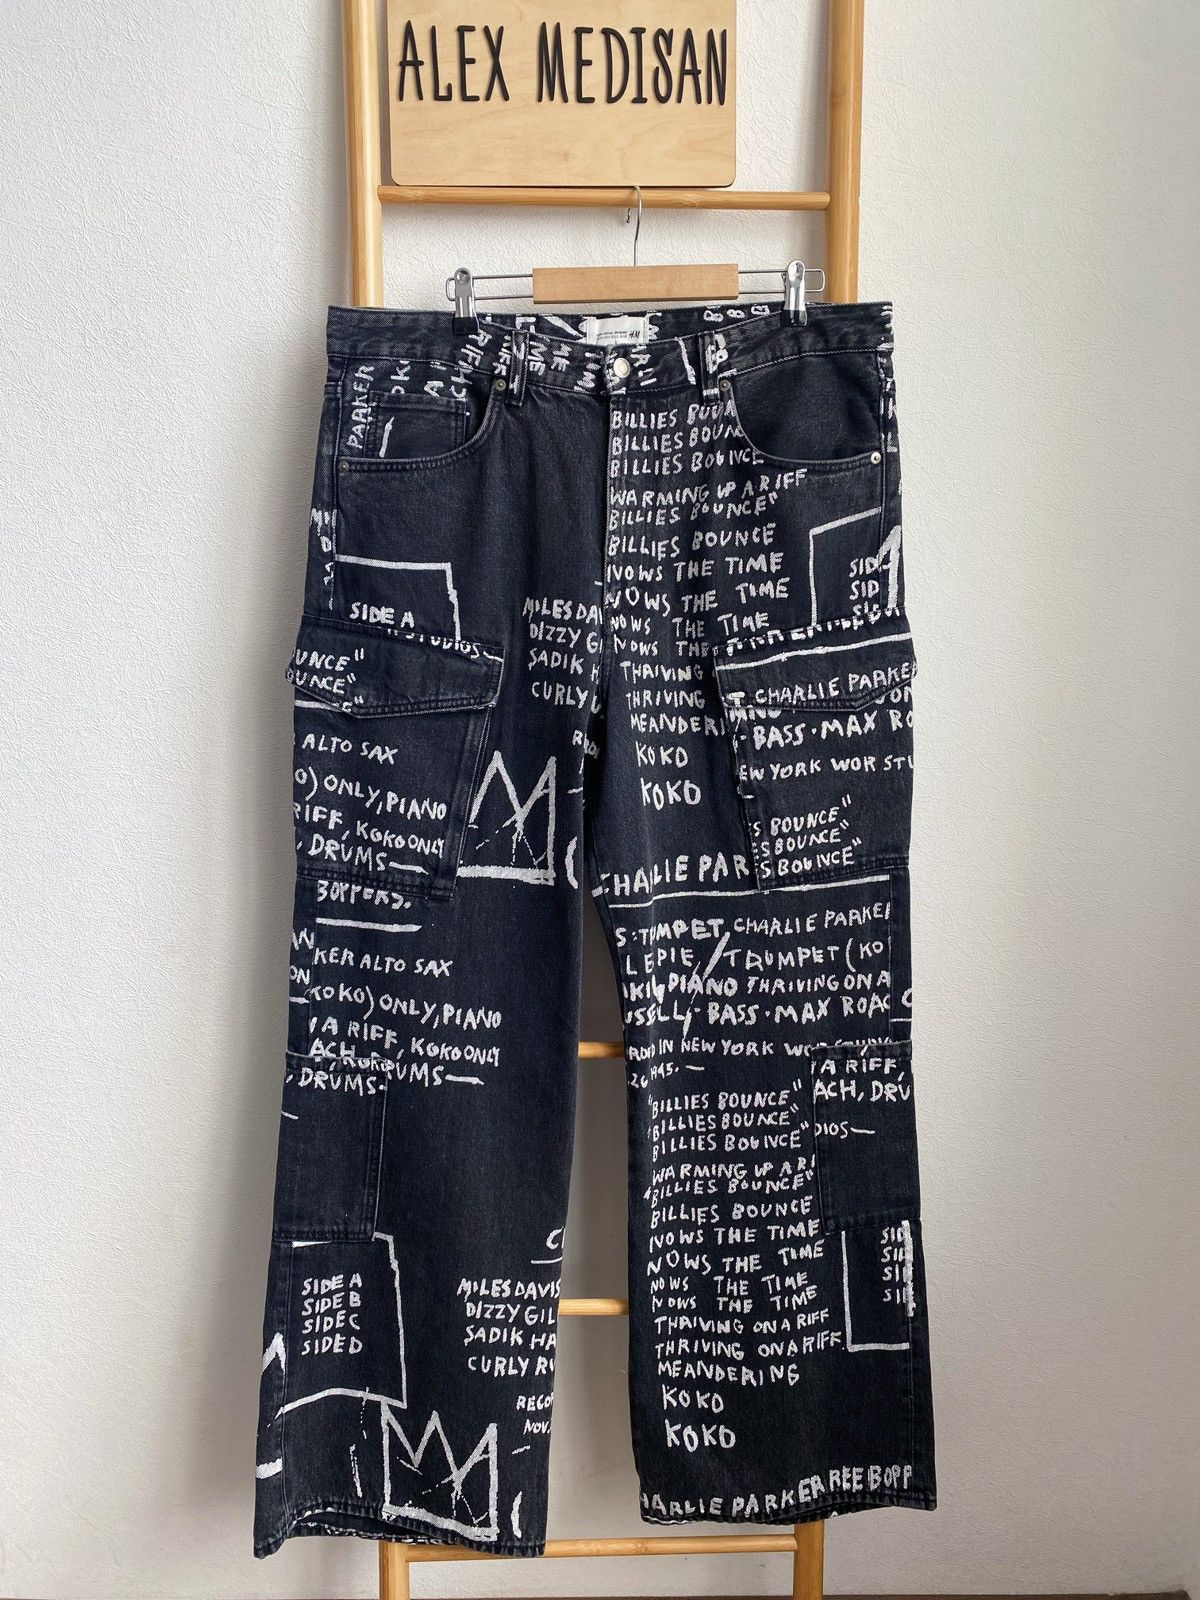 ALEX MEDISAN
H&M
PARKER
BILLIES BOUN
BILLIES BOUN
BILLIES BOUNCE
WARMING UP A RIFF
BILLIES BOUNCE"
BILLIES BOUNCE
NOWS THE TIME
NOWS THE TIME
NOWS THE TIME
NOWS THE
THRIVING
THRIVING
MEANDERI
KOKO
KOKO
SIDE A
STUDIOS
UNCE"
OUNCE"
ALTO SAX
O) ONLY, PIANO
RIFF, KOKO ONLY
, DRUMS—
MILES DA
DIZZY G
SADIK H
CURLY
SID
SID
CHARLIE PARKER
BASS · MAX RO
EW YORK WOR STU
S BOUNCE"
S BOUNCE"
S BOUNCE"
CHARLIE PAR
BOPPERS.
KER ALTO SAX
KOKO) ONLY, PIANO
A RIFF, KOKO ONLY
ACH,
, DRUMS.
RUMS—
S: TRUMPET, CHARLIE PARKE
LEPIE / TRUMPET (KO
KIL, PIANO THRIVING ON A
USSELL, · BASS · MAX ROAC
RDED IN NEW YORK WOR STUDI
26 1945. —
"BILLIES BOUNCE"
BILLIES BOUNCE"
BILLIES BOUNCE"
WARMING UP A RI
"BILLIES BOUNCE"
BILLIES BOUNCE
NOWS THE TIME
NOWS THE TIME
NOWS THE TIME
NOWS THE TIME
THRIVING ON A RIFF
THRIVING ON A RIFF.
MEANDERING
KOKO
KOKO
A RIFF,
ACH, DRU
DIOS—
SIDE A
SIDE B
SIDE C
SIDE D
MILES DAVIS
DIZZY GIL
SADIK HA
CURLY RU
RECO
NOV.
SID
SI
SI
SI
HARLIE PARKER REEBOPP